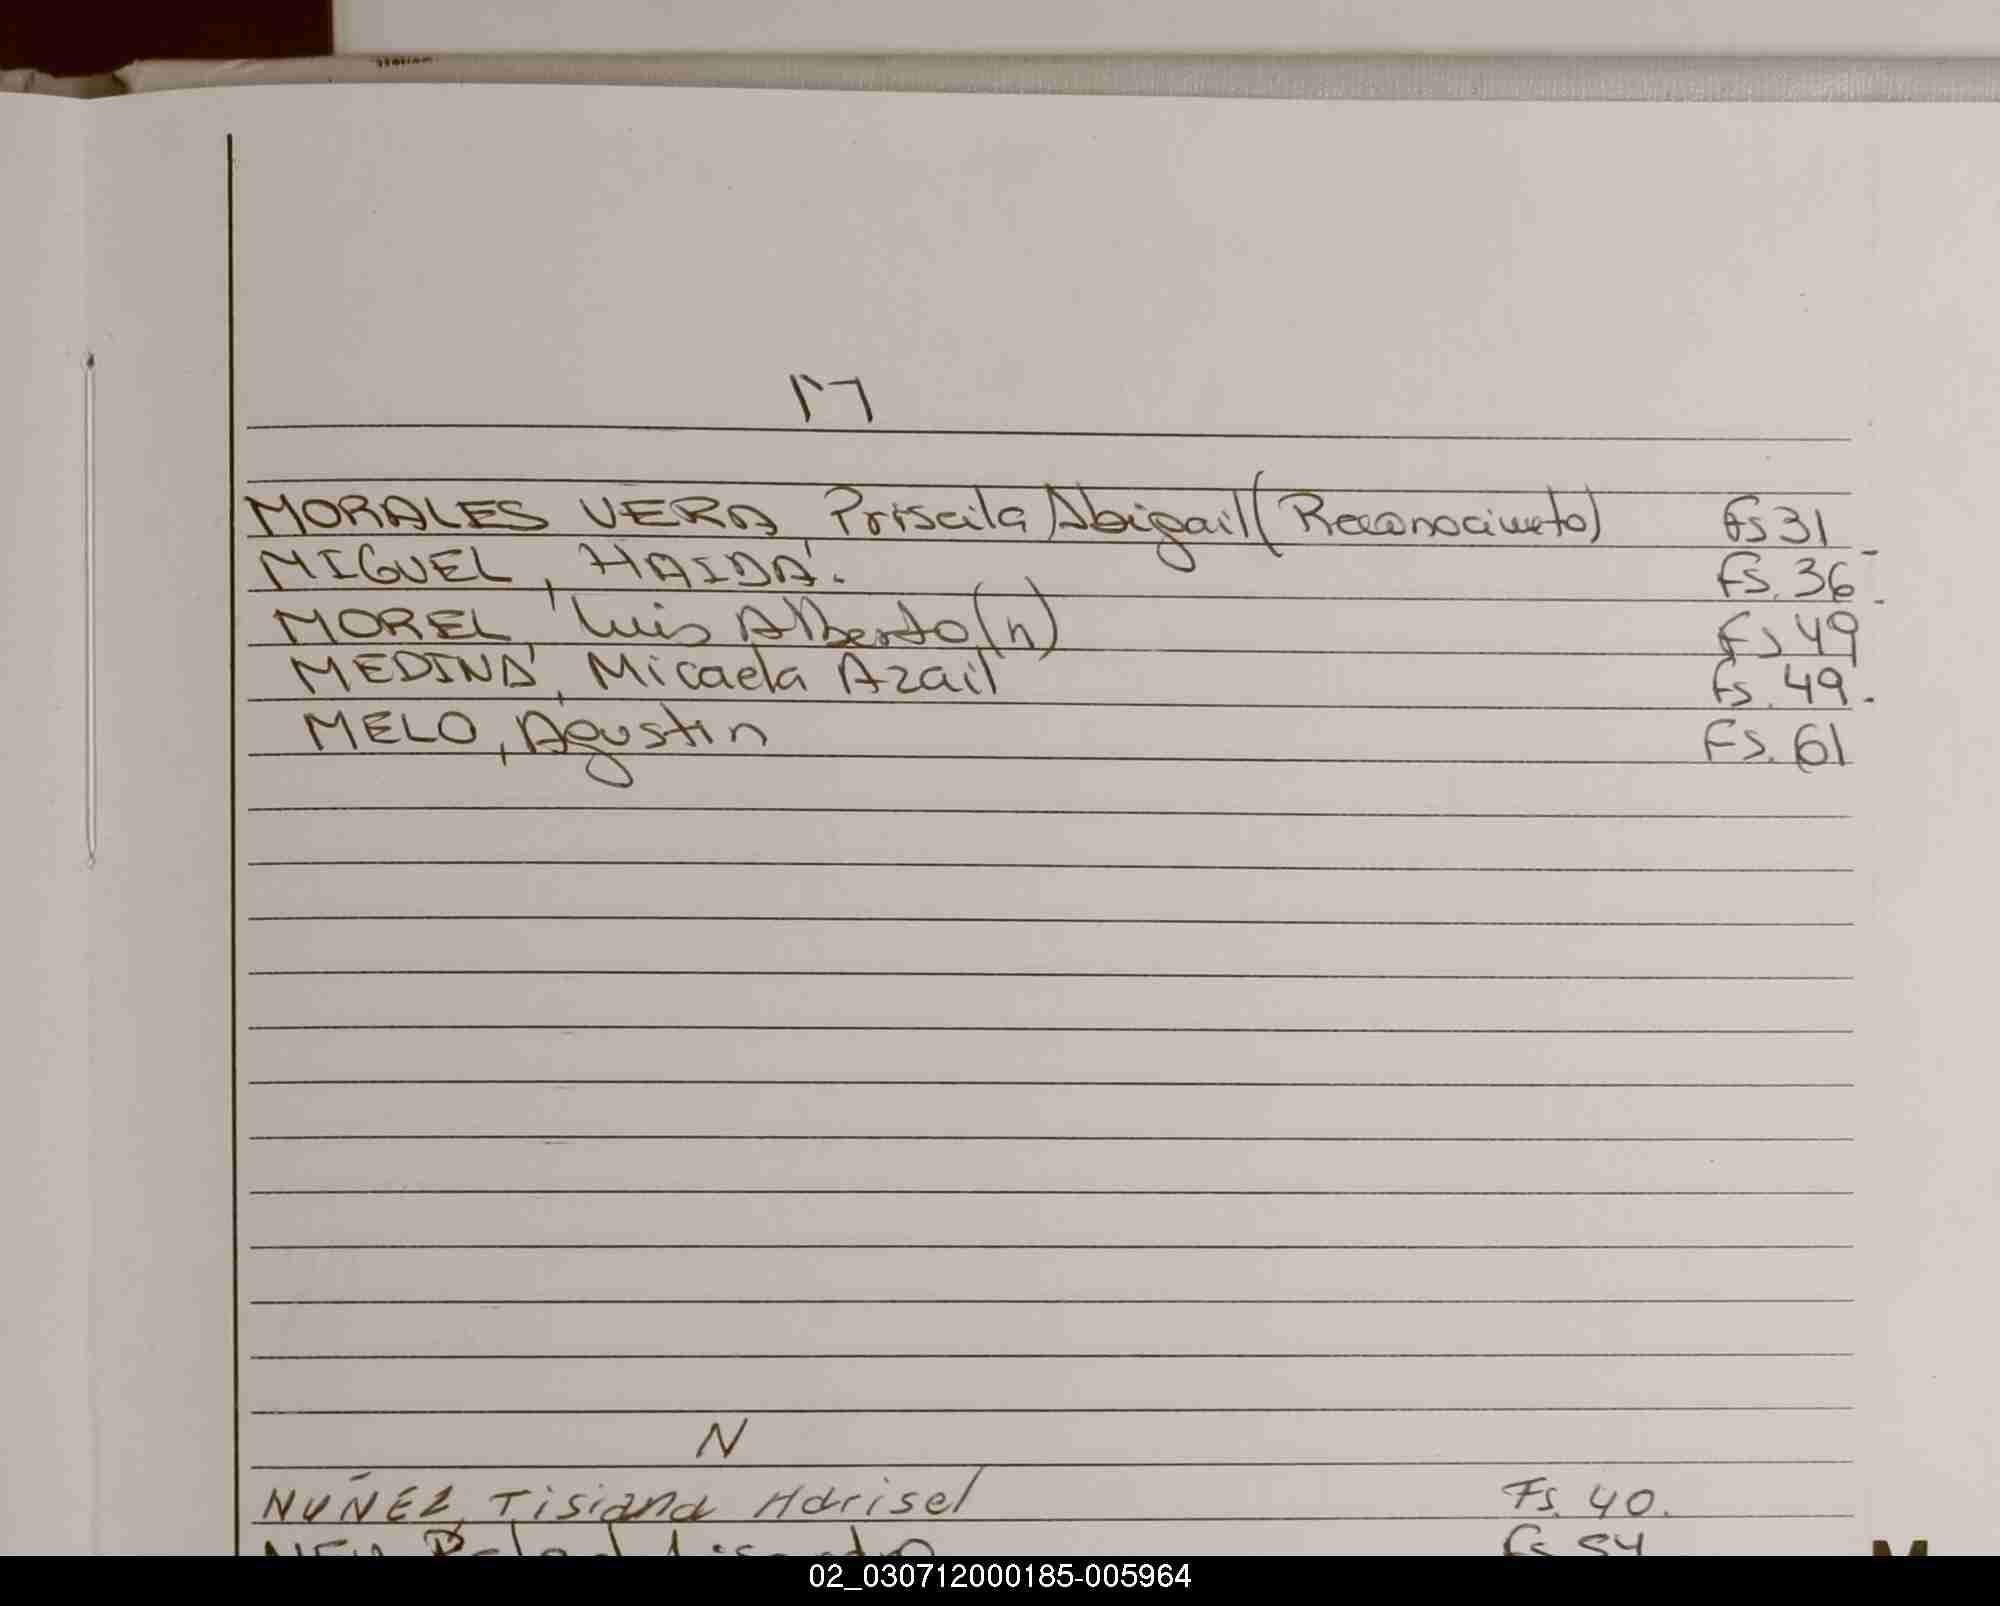 M
MORALES VERA Priscila Abigail (Reconocimeto) Fs 31
MIGUEL, HAIDA. Fs. 36
MOREL, Luis Alberto (n) Fs 49
MEDINA, Micaela Azail Fs. 49.
MELO, Agustin Fs. 61
N
NUÑEZ, Tisiana Marisel Fs. 40.
Fs 54
M
02_030712000185-005964